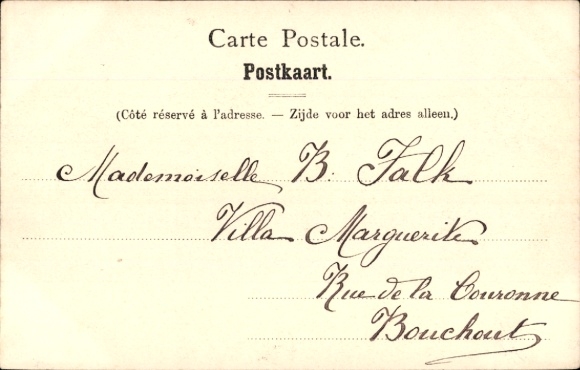 Carte Postale.
Postkaart.
(Côté réservé à l'adresse. — Zijde voor het adres alleen.)
Mademoiselle B. Falk
Villa Marguerite
Rue de la Couronne
Bouchout